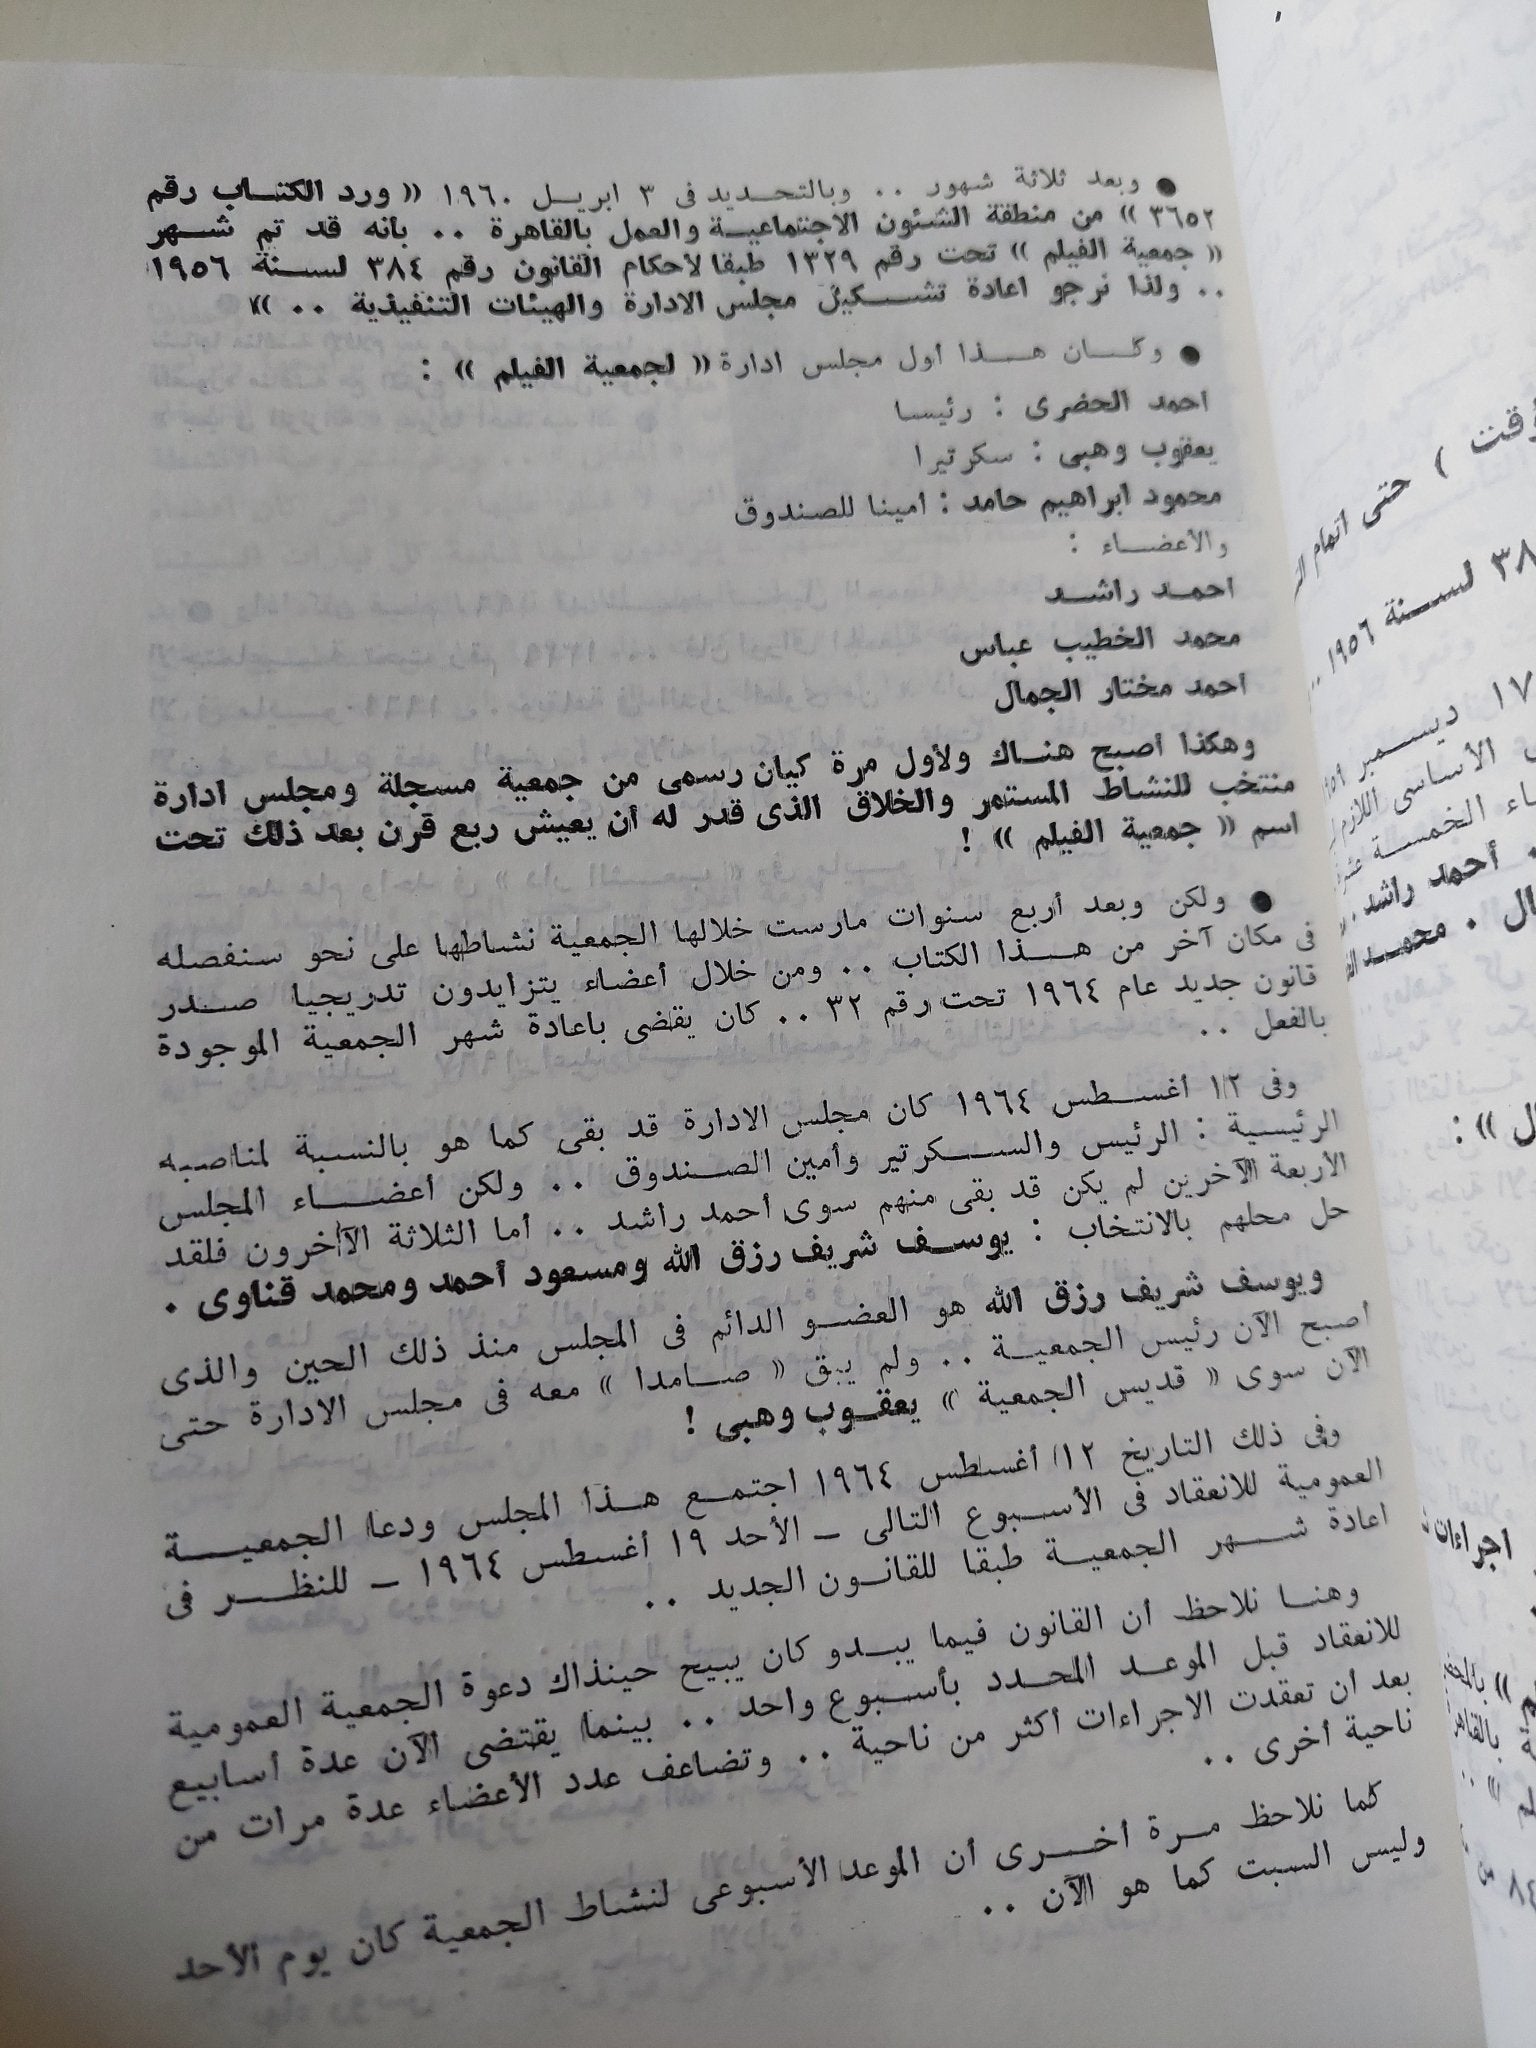 ● وبعد ثلاثة شهور .. وبالتحديد فى ٣ ابريل ١٩٦٠ « ورد الكتاب رقم
٣٦٥٢ » من منطقة الشئون الاجتماعية والعمل بالقاهرة .. بأنه قد تم شهر
« جمعية الفيلم » تحت رقم ١٣٢٩ طبقا لأحكام القانون رقم ٣٨٤ لسنة ١٩٥٦
.. ولذا نرجو اعادة تشكيل مجلس الادارة والهيئات التنفيذية .. »
● وكان هذا أول مجلس ادارة « لجمعية الفيلم » :
احمد الحضرى : رئيسا
يعقوب وهبى : سكرتيرا
محمود ابراهيم حامد : امينا للصندوق
والأعضاء :
احمد راشد
محمد الخطيب عباس
احمد مختار الجمال
وهكذا أصبح هناك ولأول مرة كيان رسمى من جمعية مسجلة ومجلس ادارة
منتخب للنشاط المستمر والخلاق الذى قدر له أن يعيش ربع قرن بعد ذلك تحت
اسم « جمعية الفيلم » !
● ولكن وبعد أربع سنوات مارست خلالها الجمعية نشاطها على نحو سنفصله
فى مكان آخر من هذا الكتاب .. ومن خلال أعضاء يتزايدون تدريجيا صدر
قانون جديد عام ١٩٦٤ تحت رقم ٣٢ .. كان يقضى باعادة شهر الجمعية الموجودة
بالفعل ..
وفى ١٢ أغسطس ١٩٦٤ كان مجلس الادارة قد بقى كما هو بالنسبة لمناصبه
الرئيسية : الرئيس والسكرتير وأمين الصندوق .. ولكن أعضاء المجلس
الأربعة الآخرين لم يكن قد بقى منهم سوى أحمد راشد .. أما الثلاثة الآخرون فلقد
حل محلهم بالانتخاب : يوسف شريف رزق الله ومسعود أحمد ومحمد قناوى .
ويوسف شريف رزق الله هو العضو الدائم فى المجلس منذ ذلك الحين والذى
أصبح الآن رئيس الجمعية .. ولم يبق « صامدا » معه فى مجلس الادارة حتى
الآن سوى « قديس الجمعية » يعقوب وهبى !
وفى ذلك التاريخ ١٢ أغسطس ١٩٦٤ اجتمع هذا المجلس ودعا الجمعية
العمومية للانعقاد فى الأسبوع التالى – الأحد ١٩ أغسطس ١٩٦٤ – للنظر فى
اعادة شهر الجمعية طبقا للقانون الجديد ..
وهنا نلاحظ أن القانون فيما يبدو كان يبيح حينذاك دعوة الجمعية العمومية
للانعقاد قبل الموعد المحدد بأسبوع واحد .. بينما يقتضى الآن عدة أسابيع
بعد ان تعقدت الاجراءات أكثر من ناحية .. وتضاعف عدد الأعضاء عدة مرات من
ناحية أخرى ..
كما نلاحظ مرة أخرى أن الموعد الأسبوعى لنشاط الجمعية كان يوم الأحد
وليس السبت كما هو الآن ..
) حتى اتمام
لسنة ١٩٥٦ ..
١٧ ديسمبر
الأساسى اللازم
الخمسة
أحمد راشد
. محمد
» :
اجراءات